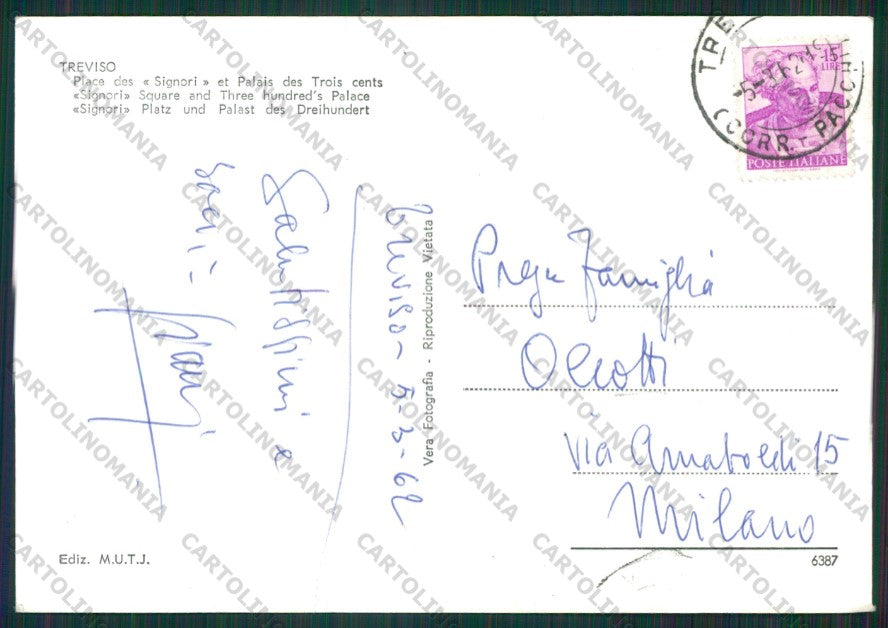 TREVISO
Place des «Signori» et Palais des Trois cents
«Signori» Square and Three hundred's Palace
«Signori» Platz und Palast des Dreihundert
15
LIRE
POSTE ITALIANE
TRE
(CORR. PACCHI
Treviso - 5-3-62
Salutissimi e
baci
Vera Fotografia - Riproduzione Vietata
Famiglia
Via Arnaboldi 15
Milano
Ediz. M.U.T.J.
6387
CARTOLINOMANIA